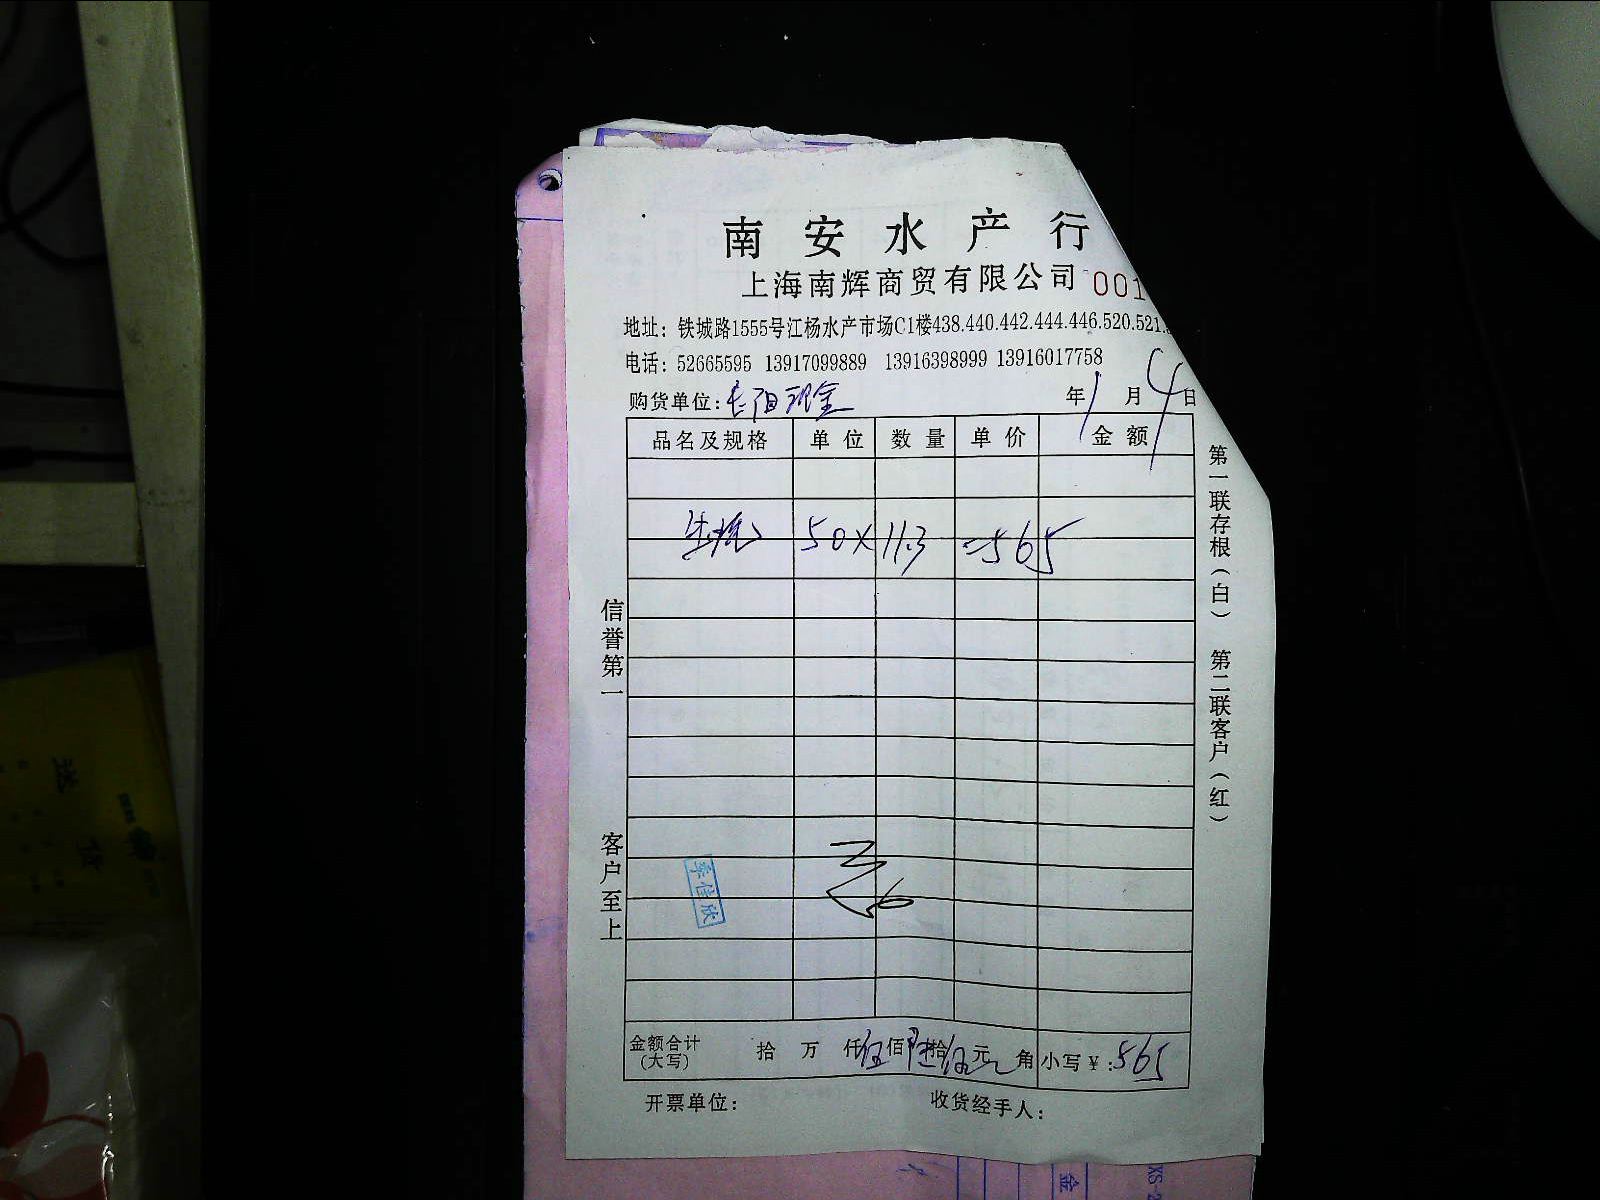 南安水产行
上海南辉商贸有限公司 001
地址：铁城路1555号江杨水产市场C1楼438.440.442.444.446.520.521.
电话：52665595 13917099889 13916398999 13916017758
购货单位：长阳现金 年1月4日
品名及规格 单位 数量 单价 金额
生蚝 50×11.3=565
信誉第一
客户至上
李佳欣
金额合计（大写） 拾 万 仟伍佰陆拾伍元 角 小写￥：565
开票单位： 收货经手人：
第一联存根（白） 第二联客户（红）
金